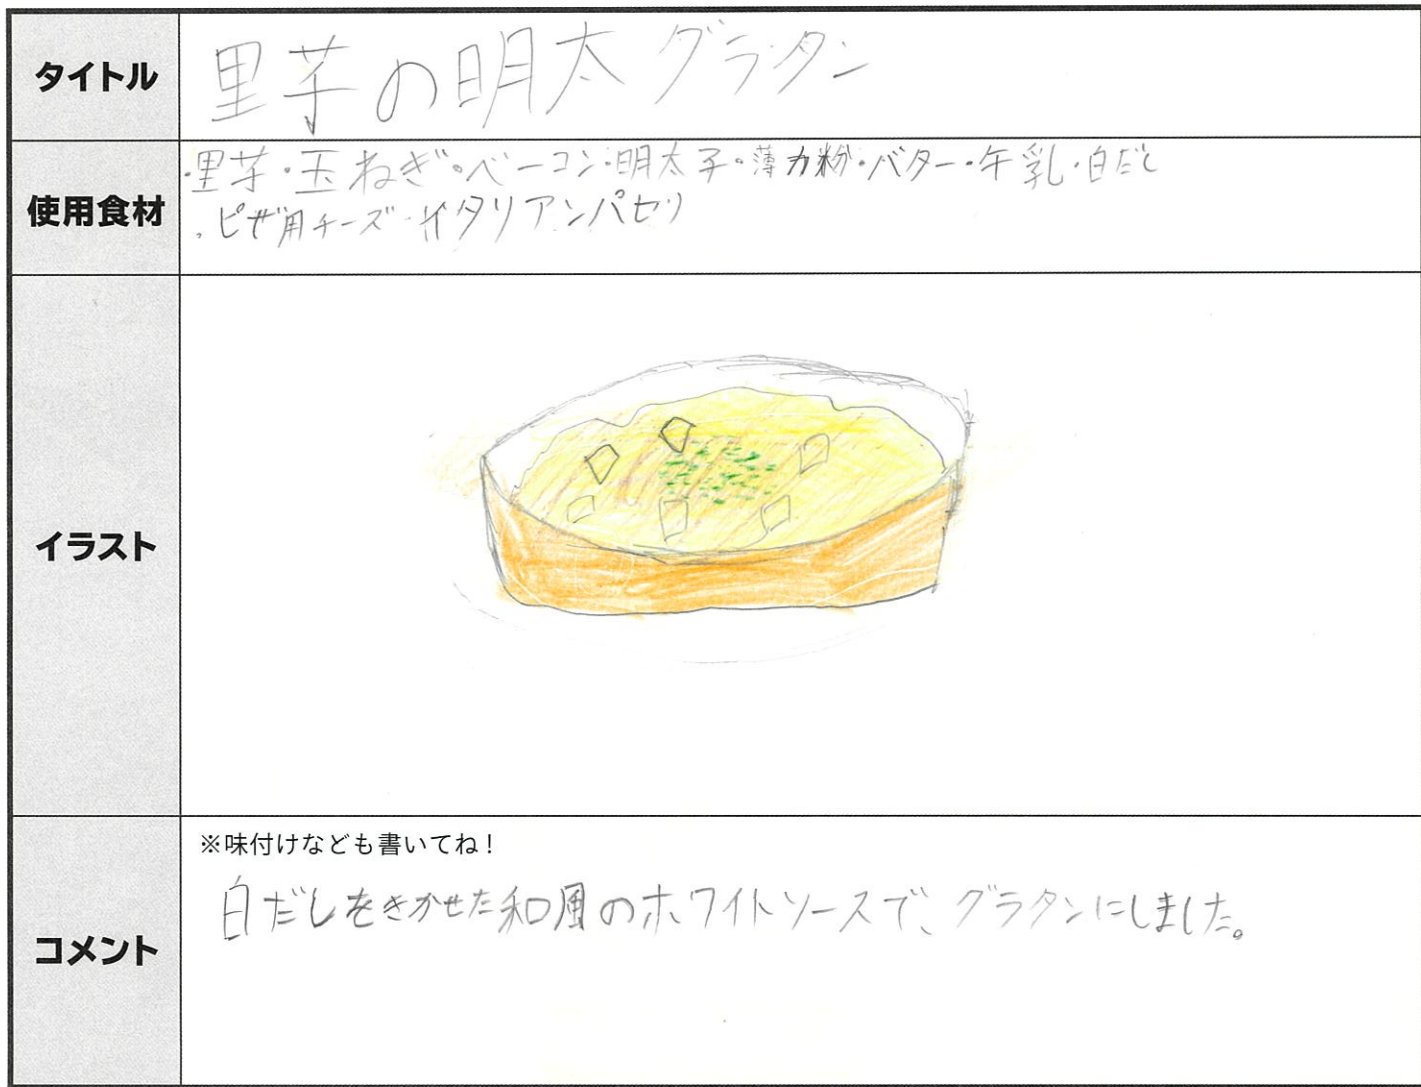 タイトル
里芋の明太グラタン
使用食材
・里芋・玉ねぎ・ベーコン・明太子・薄力粉・バター・牛乳・白だし
・ピザ用チーズ・イタリアンパセリ
イラスト
コメント
※味付けなども書いてね!
白だしをきかせた和風のホワイトソースで、グラタンにしました。